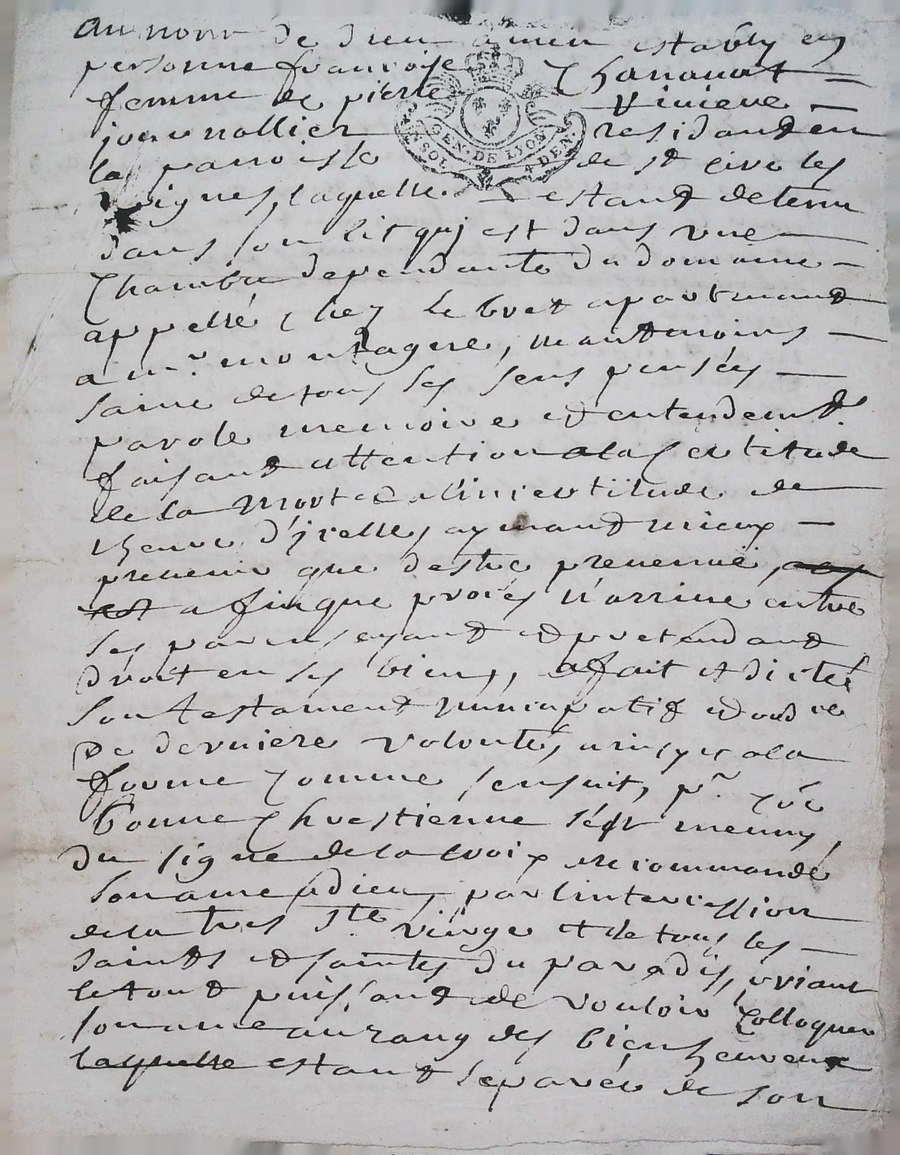 au nom de dieu amen estably en
personne francoise Chanauat
femme de pierre Viuiere
journallier residant en
la parroisse de st cire les
vignes, laquelle estant detenu
GEN. DE LYON
UN SOL 4 DEN.
dans son lit quj est dans vne
Chambre dependante du domaine
appellé chez lebret apartenant
a mr. montagne, neantmoins
saine de tous ses sens pensées
parole memoire et entendemt.
faisant attention a la certitude
de la mort et a l'incertitude de
lheure d'jcelle, aymant mieux
preuenir que destre preuenue,
afin que procès n'arriue entre
ses parens et pretendant
droit en ses biens, a fait et dicté
son testament nuncupatif et ordre
de derniere volonté, a la
forme comme sensuit, pr. Coe
bonne Chrestienne s'est meuny
du signe de la croix recommandé
son ame a dieu, par lintercession
de la tres ste. vierge et de tous les
saints et saintes du paradis, priant
le tout puissant de vouloir Colloquer
son ame au rang des bien heureux
laquelle estant separée de son